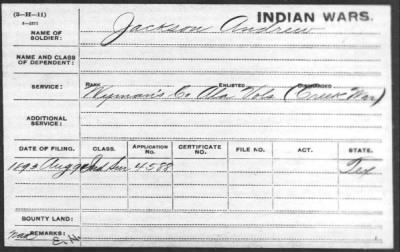 (3-H-11)
INDIAN WARS.
NAME OF SOLDIER: Jackson Andrew
NAME AND CLASS OF DEPENDENT:
RANK ENLISTED DISCHARGED
SERVICE: Wyman's Co Ala Vols (Creek War)
ADDITIONAL SERVICE:
DATE OF FILING. CLASS. APPLICATION NO. CERTIFICATE NO. FILE NO. ACT. STATE.
Aug 4588 Tex
BOUNTY LAND:
REMARKS: